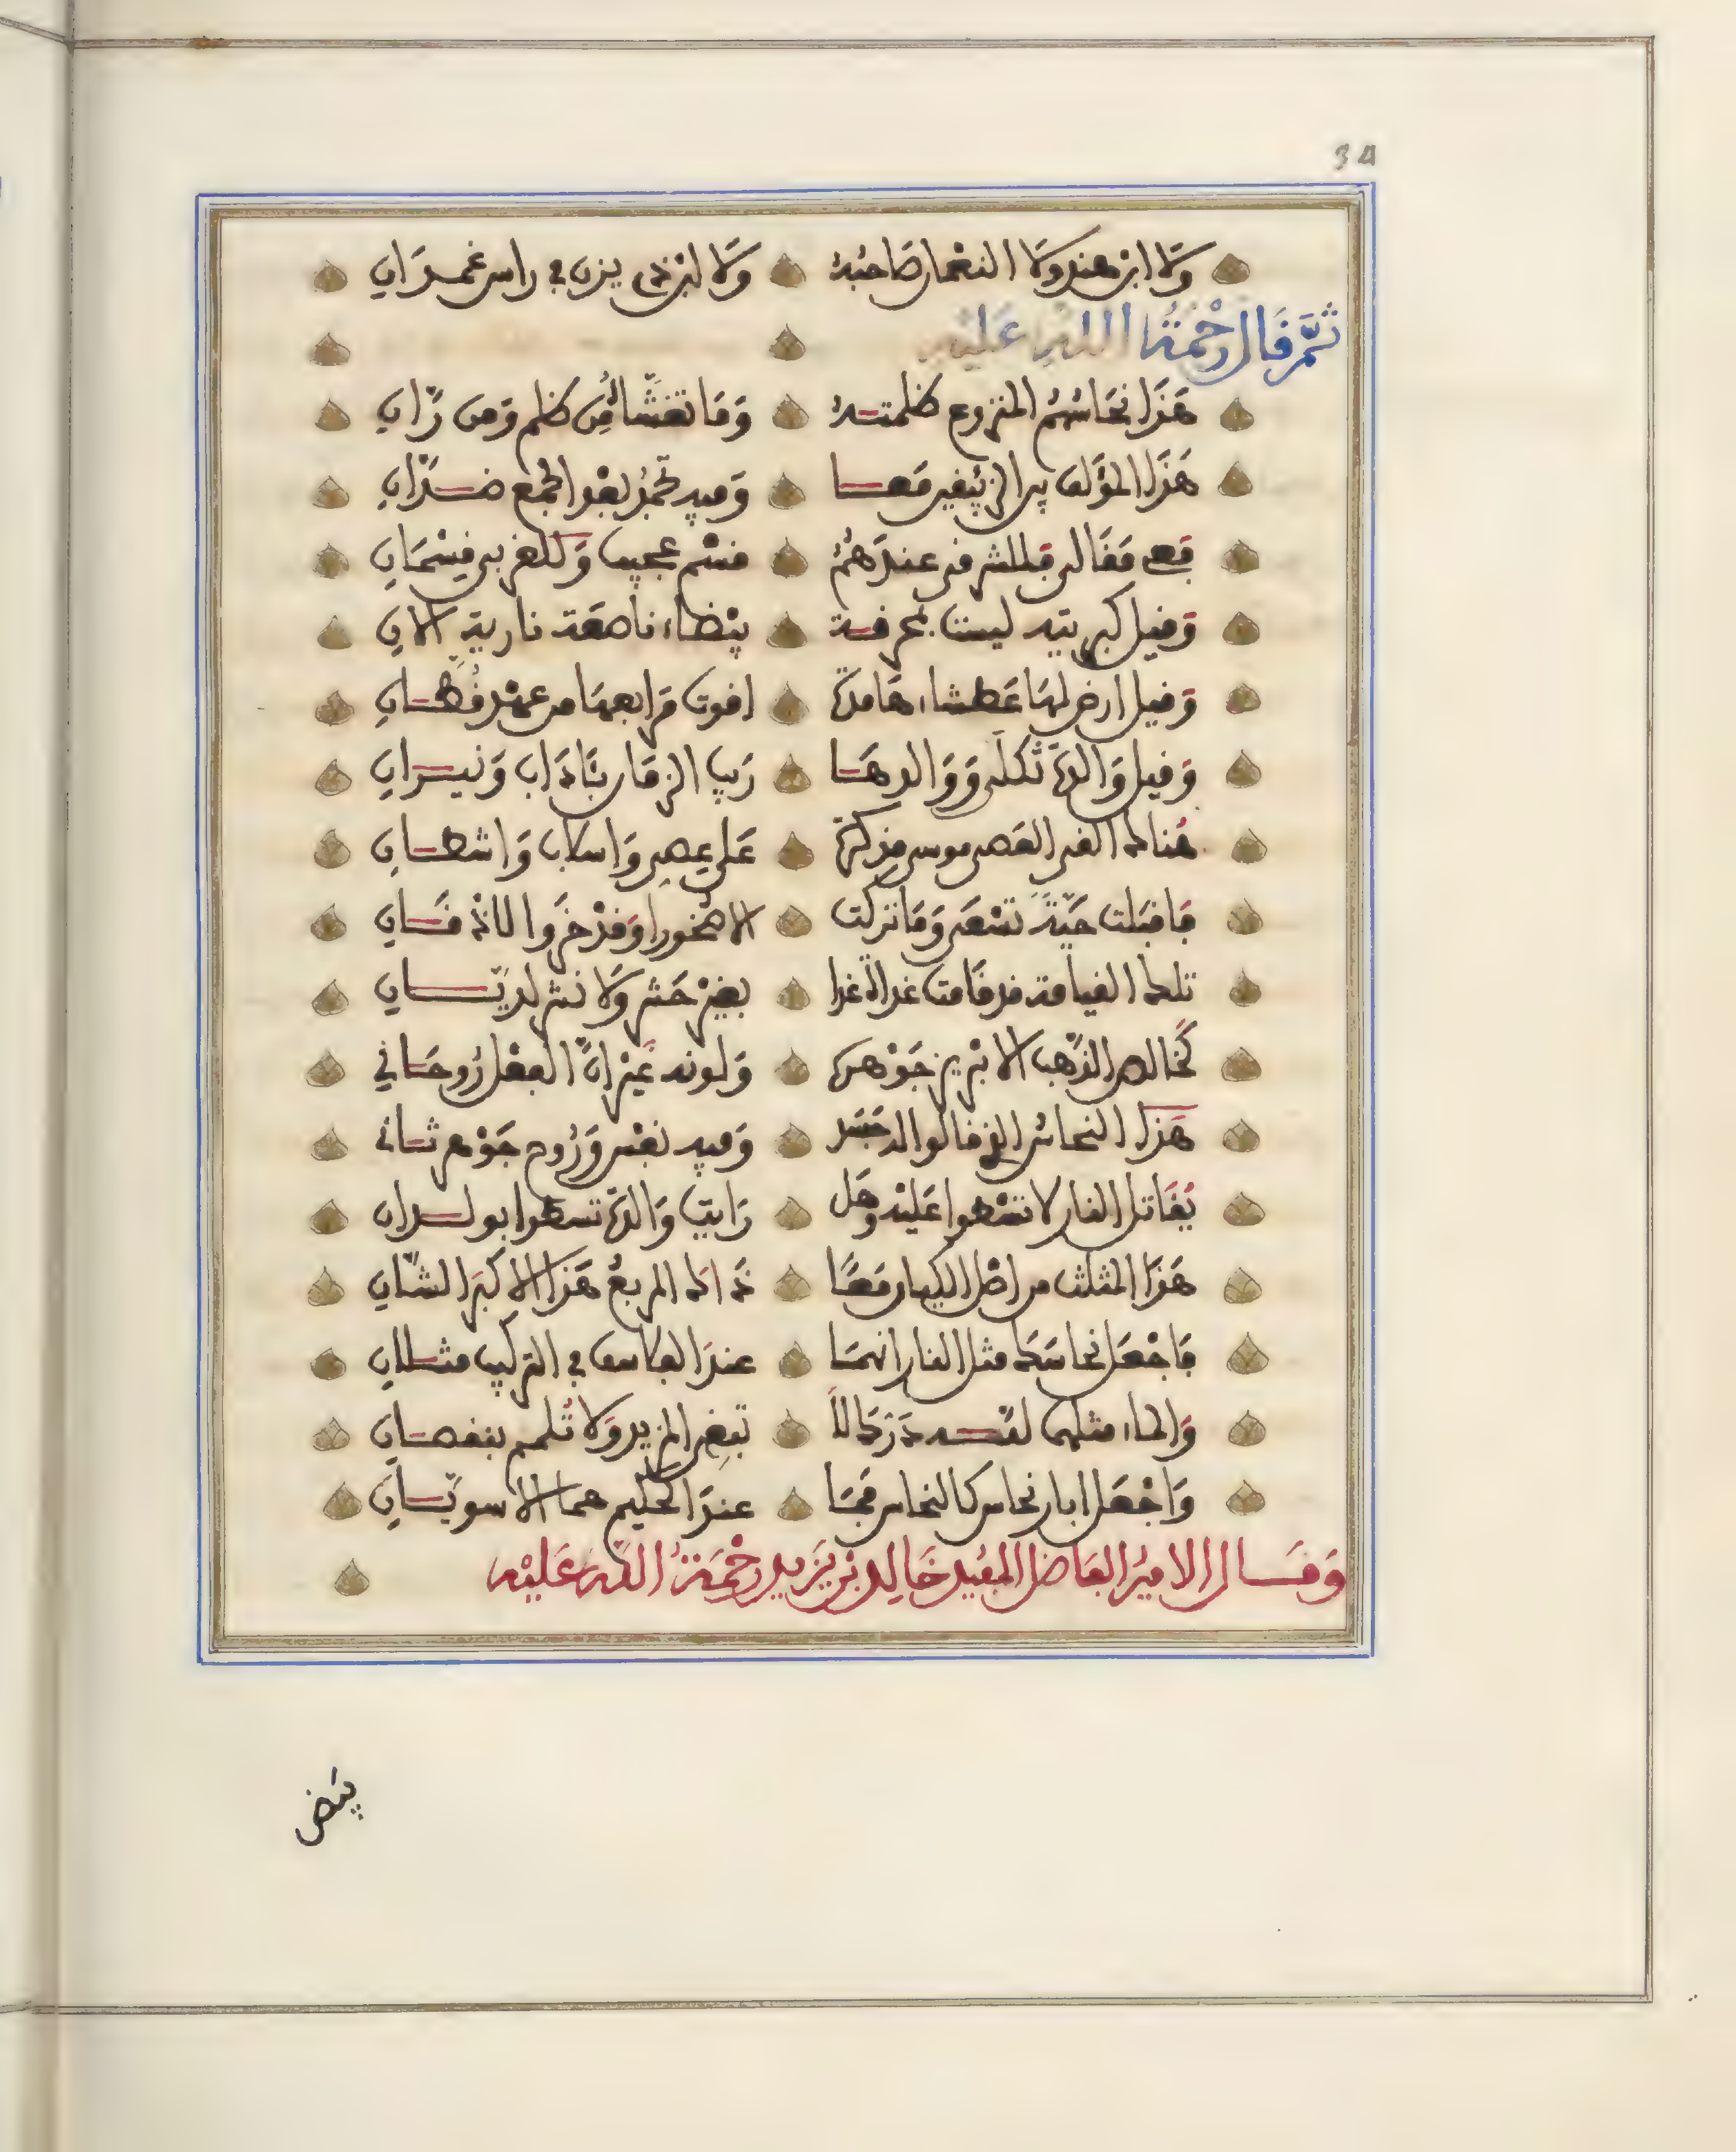 34
ولا ابن هند ولا النعمان صاحبه ولا ابن ذي يزن في راس غمدان
ثم قال رحمة الله عليه
هذا نحاسهم المنزوع ظلمته وما تغشاه من ظلم ومن ران
هذا المؤلف معا وفيه تجمد بعد الجمع ضدان
فقال قبل للشرق عندهم قسم عجيب وللغربي قسمان
وقيل كبريته ليست بمحرقة بيضاء ناصعة نارية الان
وقيل ارض لها عطشاء هامدة اقوت مرابعها من عهد قحطان
وقيل والدة ثكلى ووالدها ريب الزمان بئاداب ونيران
هناك القى العصى موسى على عصي واسلاب واشطان
فاقبلت حية تسعى وما تركت الا صخورا وقد خروا للاذقان
تلك القيامة قد قامت غداة غدا بغير حشر ولا نشر لديان
كخالص الذهب الابريز جوهره ولونه غير ان الفعل روحاني
هذا النحاس الذي قالوا له جسد وفيه نفس وروح جوهر ثان
يقاتل النار لا تسطوا عليه وهل رايت والدة تسطوا بولدان
هذا المثلث من اصل الكيان معا ذاك المربع هذا الاكبر الشان
فاجعل نحاسك مثل النار انهما عند الفلاسف في التركيب مثلان
والماء مثلهما تبغي المزيد ولا تلمم بنقصان
واجعل ابار نحاس كالنحاس فما عند الحكيم هما الا سويان
وقال الامير الفاضل المفيد خالد بن يزيد رحمة الله عليه
بيض